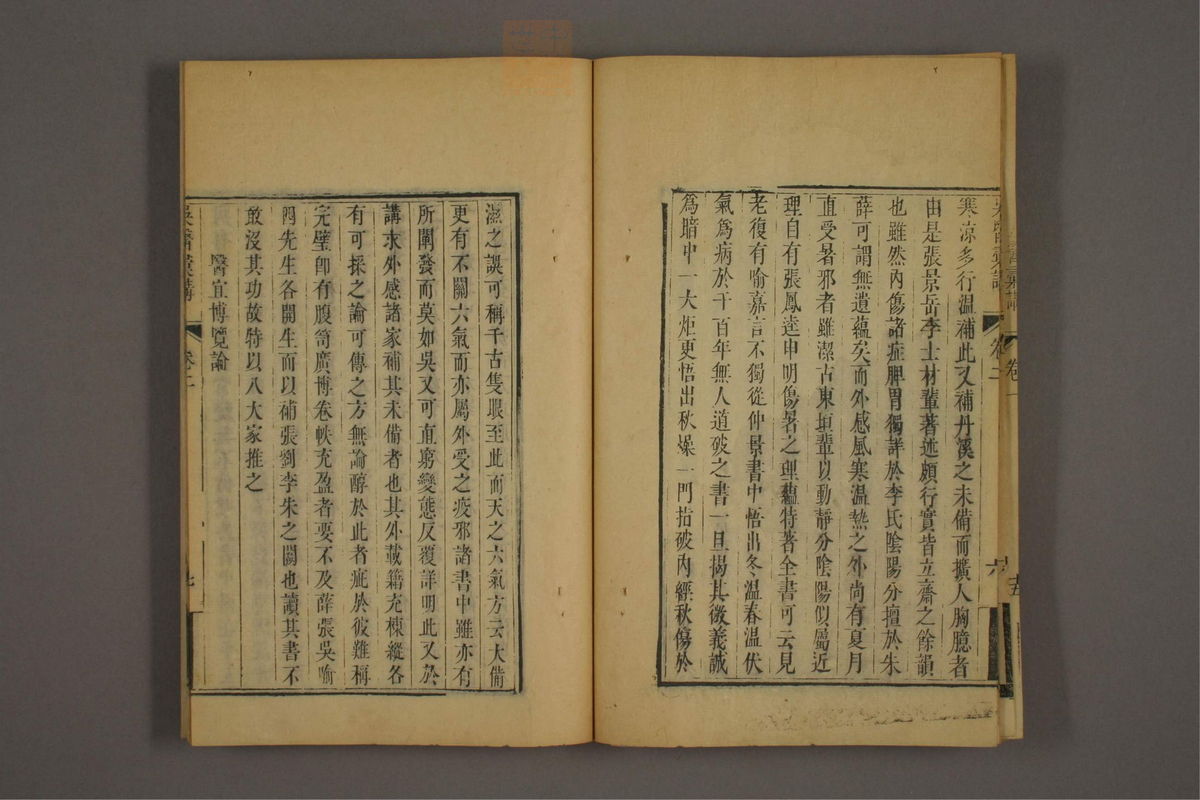 寒涼多行温補此又補丹溪之未備而擴人胸臆者
由是張景岳李士材輩著述頗行實皆立齋之餘韻
也雖然內傷諸症脾胃獨詳於李氏陰陽分擅於朱
薛可謂無遺蘊矣而外感風寒温熱之外尚有夏月
直受暑邪者雖潔古東垣輩以動靜分陰陽似屬近
理自有張鳳逵申明傷暑之理蘊特著全書可云見
老復有喻嘉言不獨從仲景書中悟出冬温春温伏
氣為病於千百年無人道破之書一旦揭其微義誠
爲暗中一大炬更悟出秋燥一門指破內經秋傷於
濕之誤可稱千古隻眼至此而天之六氣方云大備
更有不關六氣而亦屬外受之疫邪諸書中雖亦有
所闡發而莫如吳又可直窮變態反覆詳明此又於
講求外感諸家補其未備者也其外載籍充棟縱各
有可採之論可傳之方無論醇於此者疵於彼難稱
完璧卽有腹笥廣博卷帙充盈者要不及薛張吳喻
四先生各開生面以補張劉李朱之闕也讀其書不
敢沒其功故特以八大家推之
醫宜博覽論
吳醫彙講
卷二
七
吳醫彙講
卷二
六
卷一
五